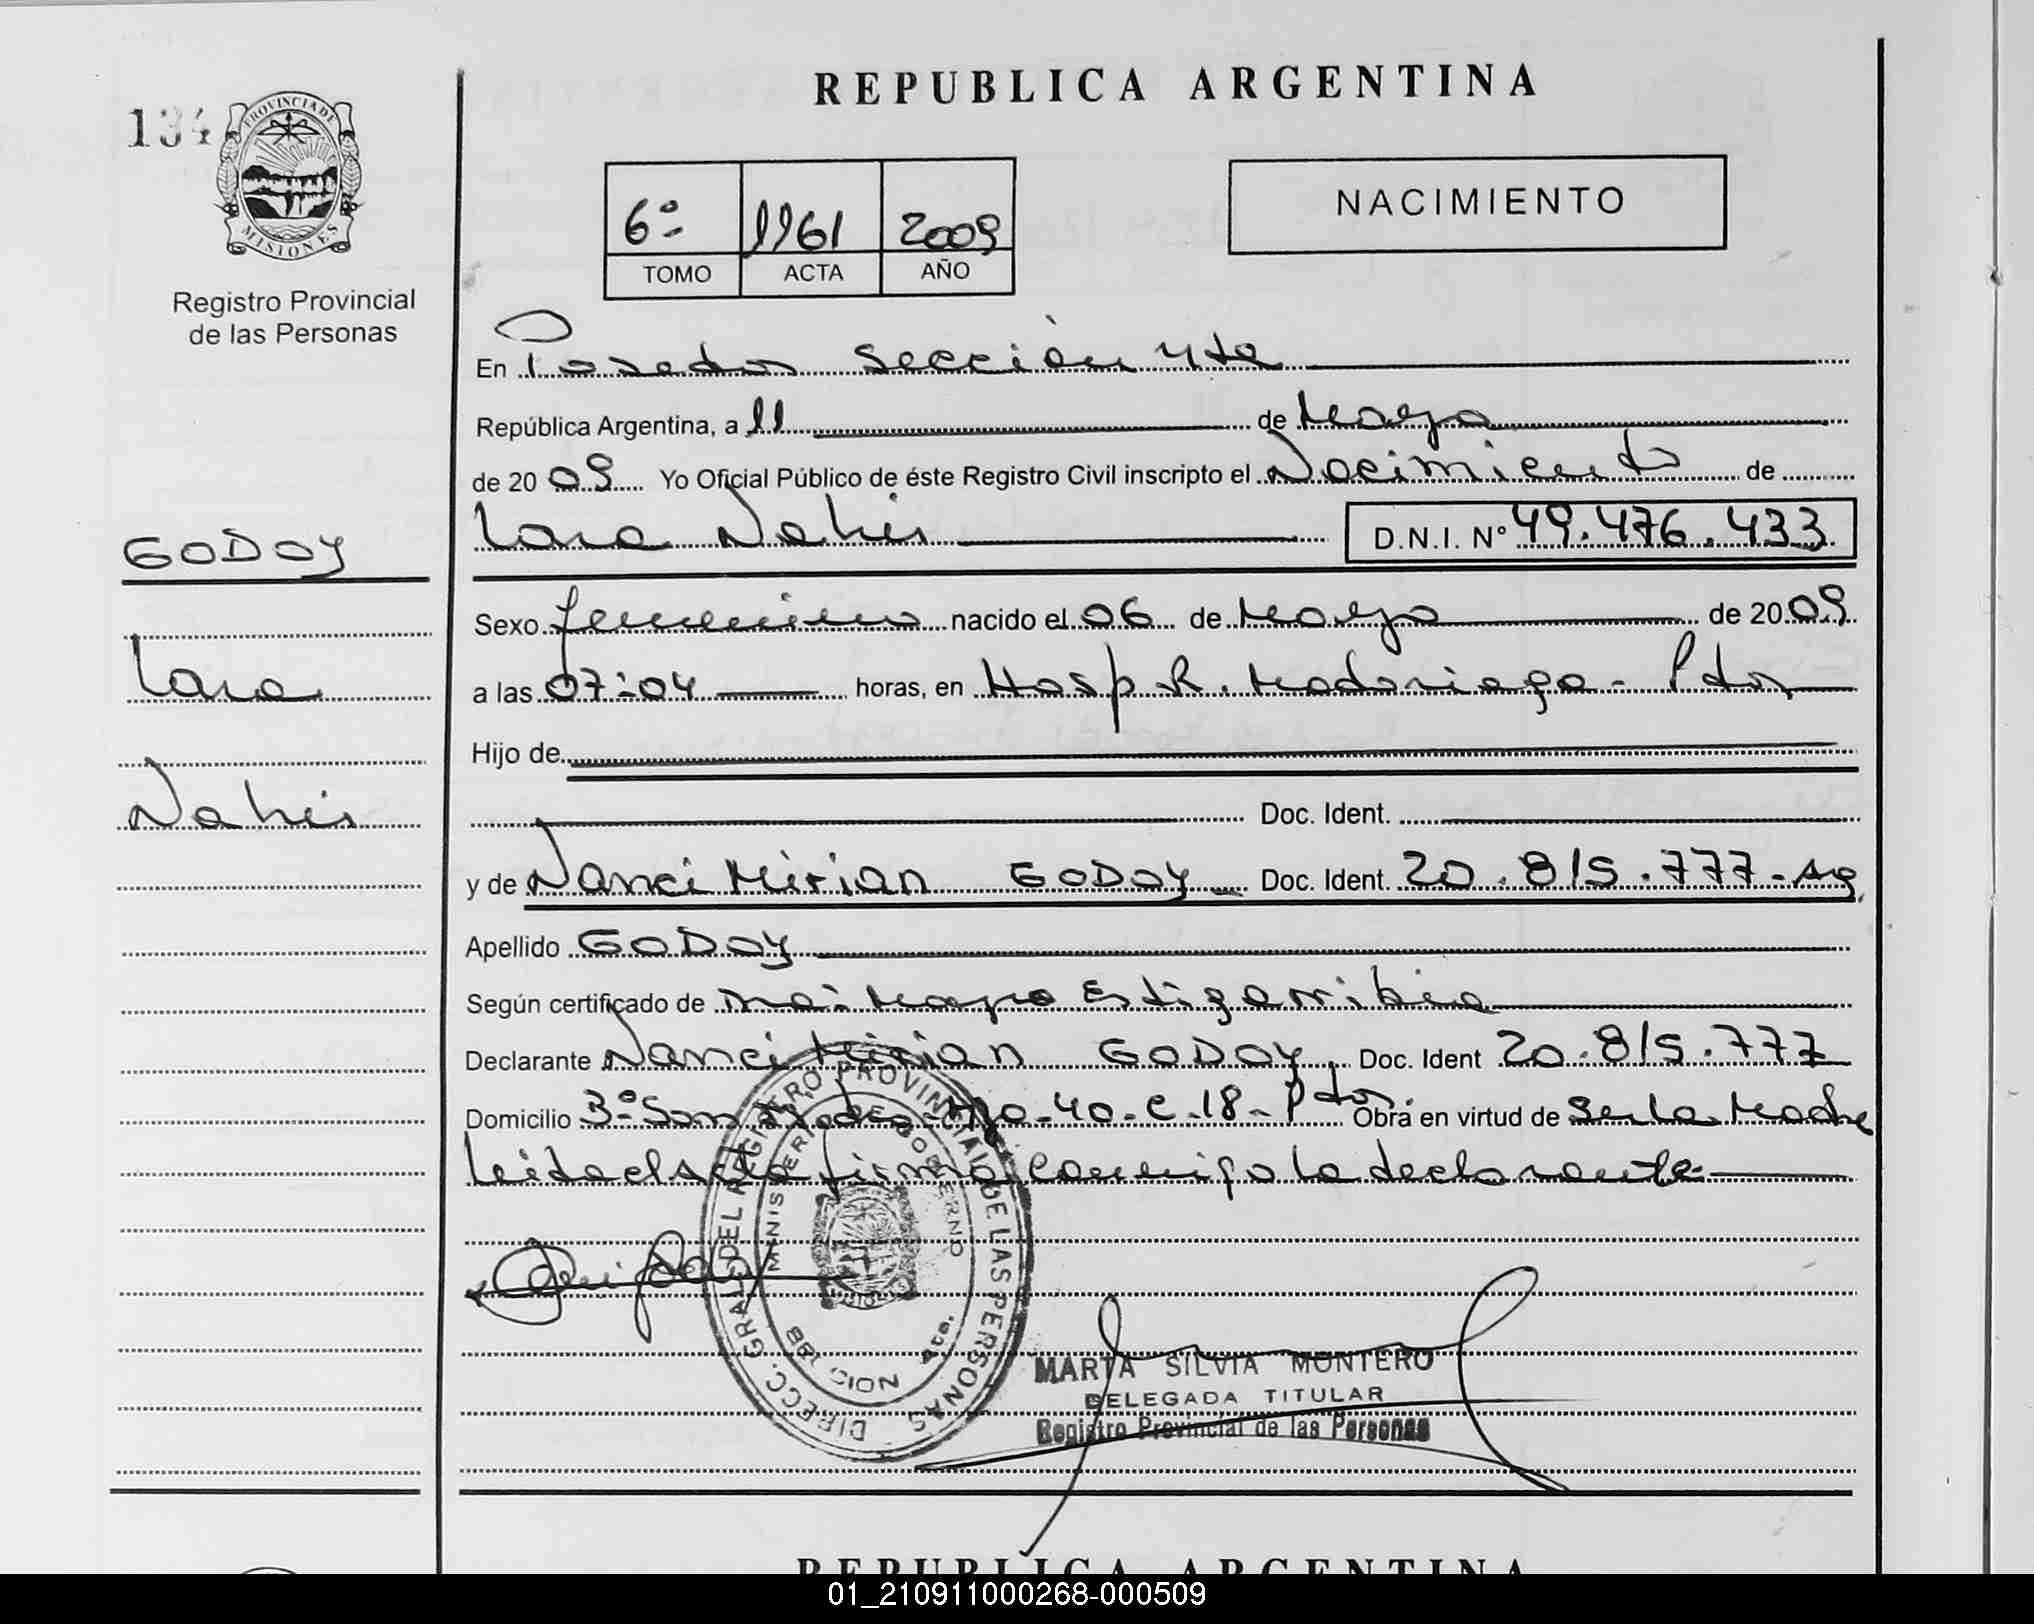 REPUBLICA ARGENTINA
134
PROVINCIA DE
MISIONES
Registro Provincial
de las Personas
6º 1161 2009
TOMO ACTA AÑO
NACIMIENTO
En Posadas Sección 4ta
República Argentina, a 11 de Mayo
de 20 09 Yo Oficial Público de éste Registro Civil inscripto el Nacimiento de
GODOY
Lara Nahir
D.N.I. Nº 49.476.433
Lara
Nahir
Sexo femenino nacido el 06 de Mayo de 20 09
a las 07:04 horas, en Hosp R. Madariaga - Pdas
Hijo de
Doc. Ident.
y de Nanci Mirian GODOY Doc. Ident. 20.815.777 - Ag
Apellido GODOY
Según certificado de Estigarribia
Declarante Nanci Mirian GODOY Doc. Ident 20.815.777
Domicilio 3º San - 40 - C - 18 - Pdas. Obra en virtud de Ser la Madre
leida el acta firma conmigo la declarante
DIRECC. GRAL. DEL REGISTRO PROVINCIAL DE LAS PERSONAS
MINISTERIO GOBIERNO
MARTA SILVIA MONTERO
DELEGADA TITULAR
Registro Provincial de las Personas
REPUBLICA ARGENTINA
01_210911000268-000509